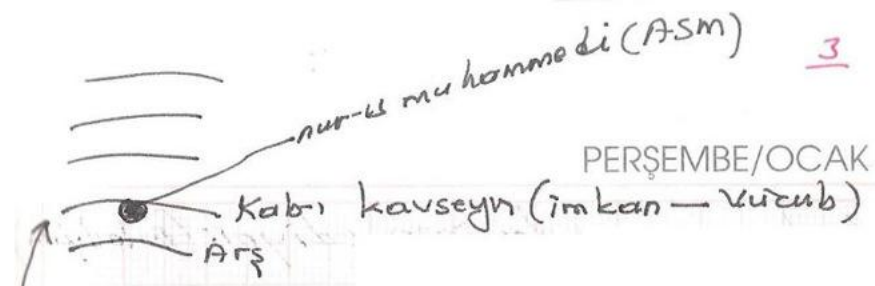 nur-u muhammedi (ASM)
3
PERŞEMBE/OCAK
Kab-ı kavseyn (imkan — vücub)
Arş